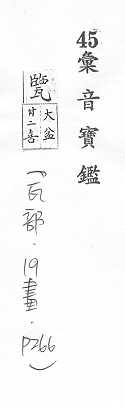 45彙音寶鑑
大盆
甘二喜
(瓦部.19畫.P266)